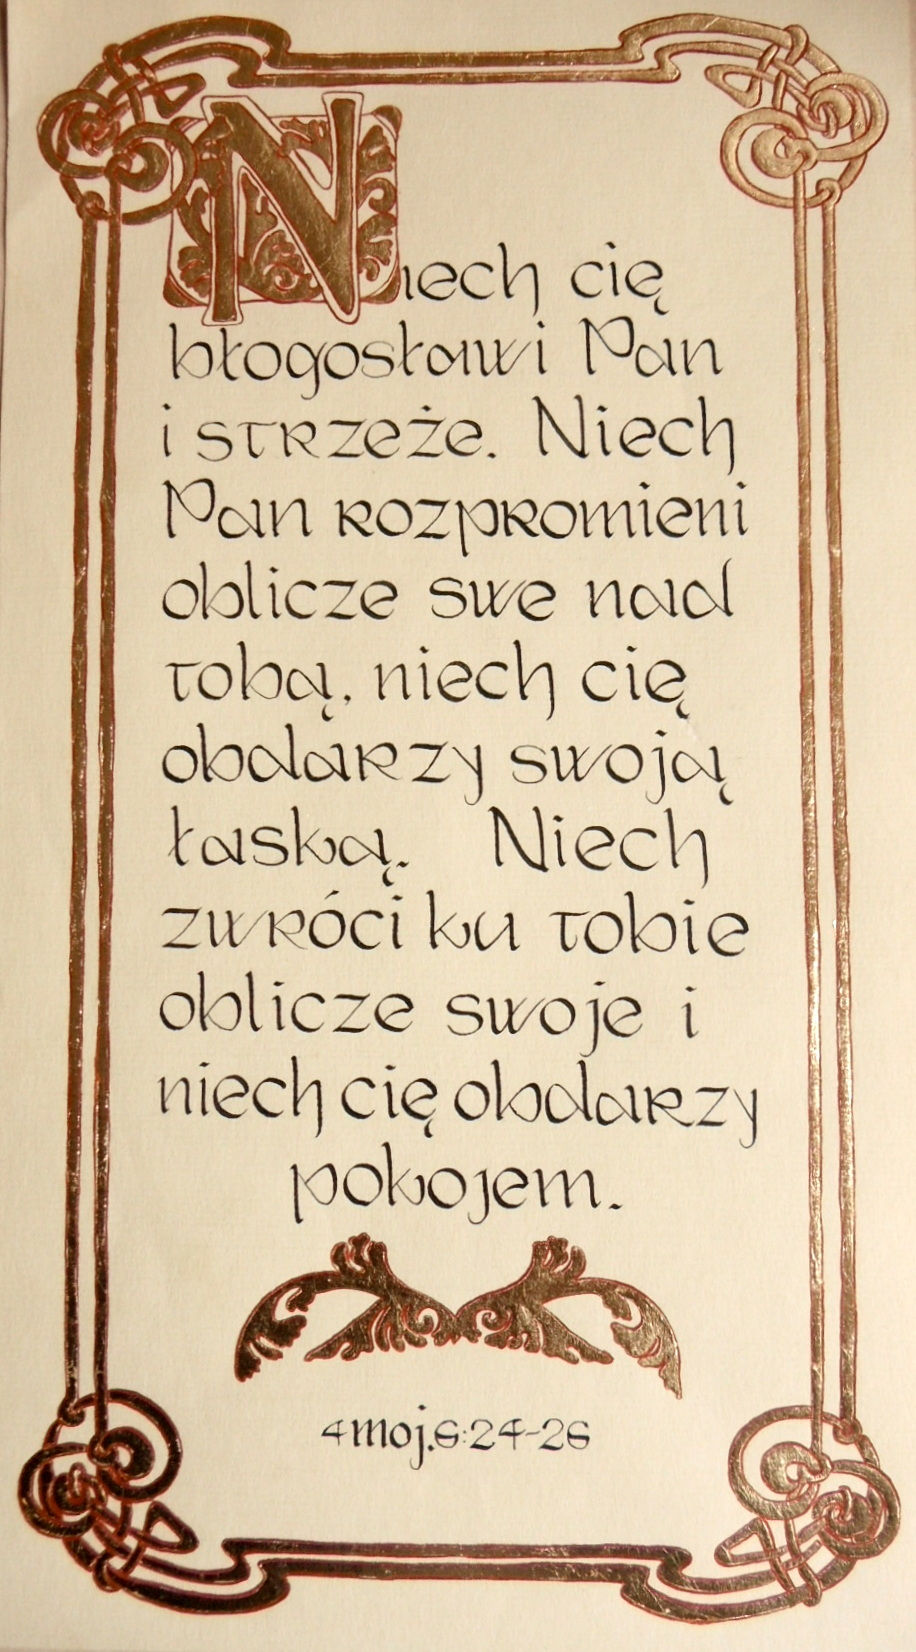 Niech cię
błogosławi Pan
i strzeże. Niech
Pan rozpromieni
oblicze swe nad
tobą, niech cię
obdarzy swoją
łaską. Niech
zwróci ku tobie
oblicze swoje i
niech cię obdarzy
pokojem.
4 moj.6:24-26